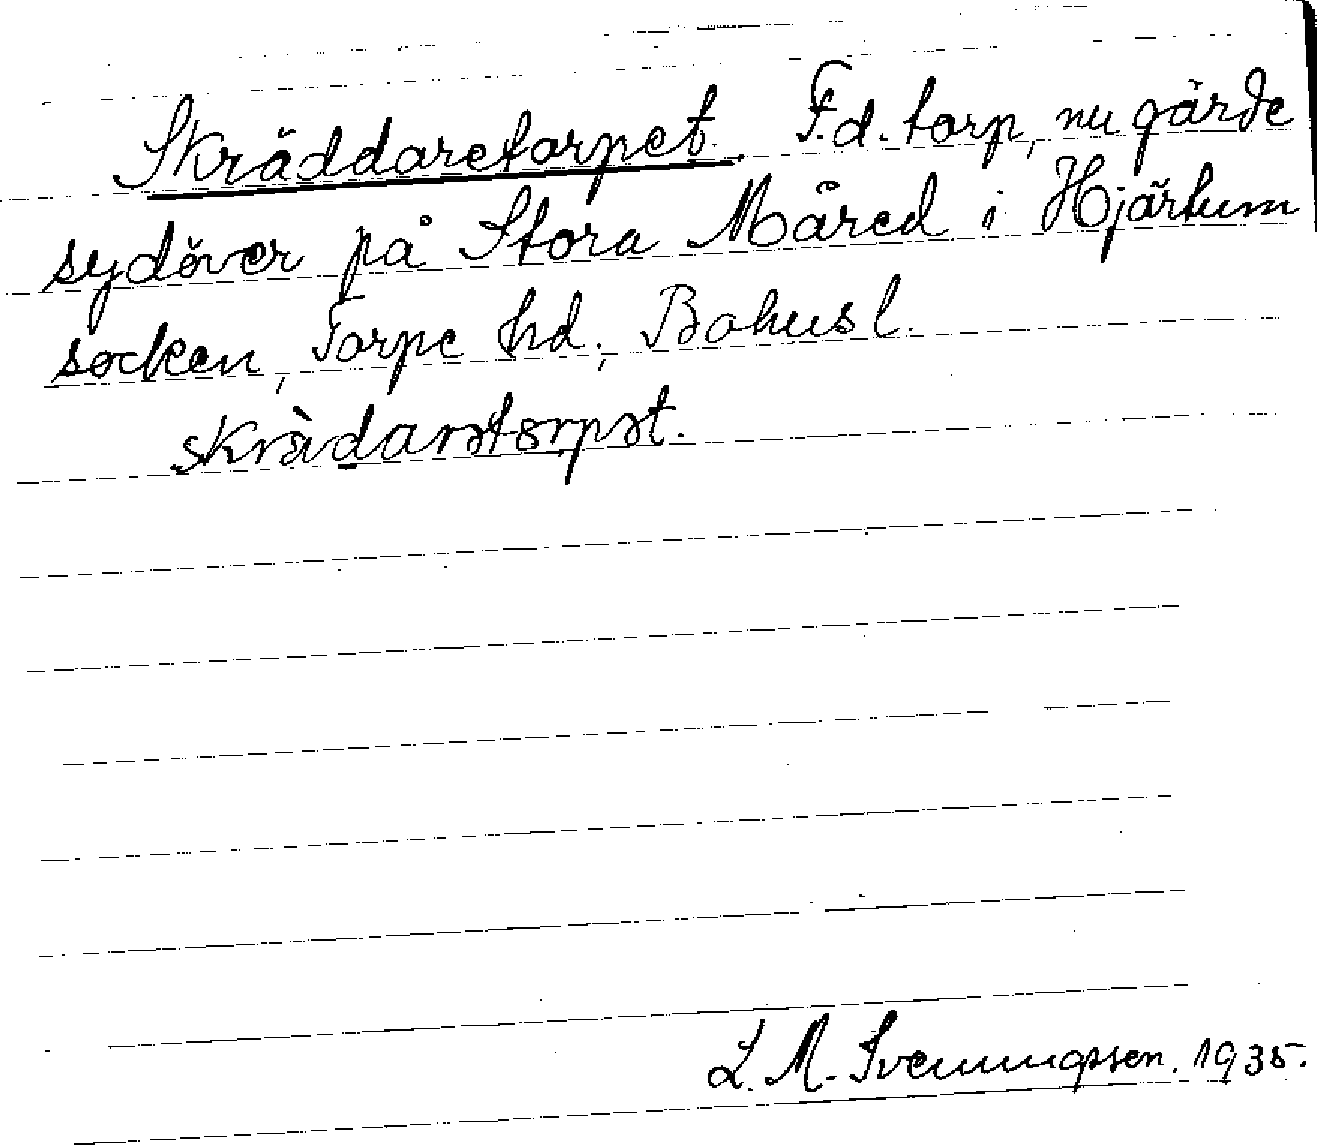 Skräddaretorpet. F.d. torp, nu gärde
sydöver på Stora Måred i Hjärtum
socken, Torpe hd., Bohusl.
skràdarətorpət.
L. M. Svenungsson. 1935.